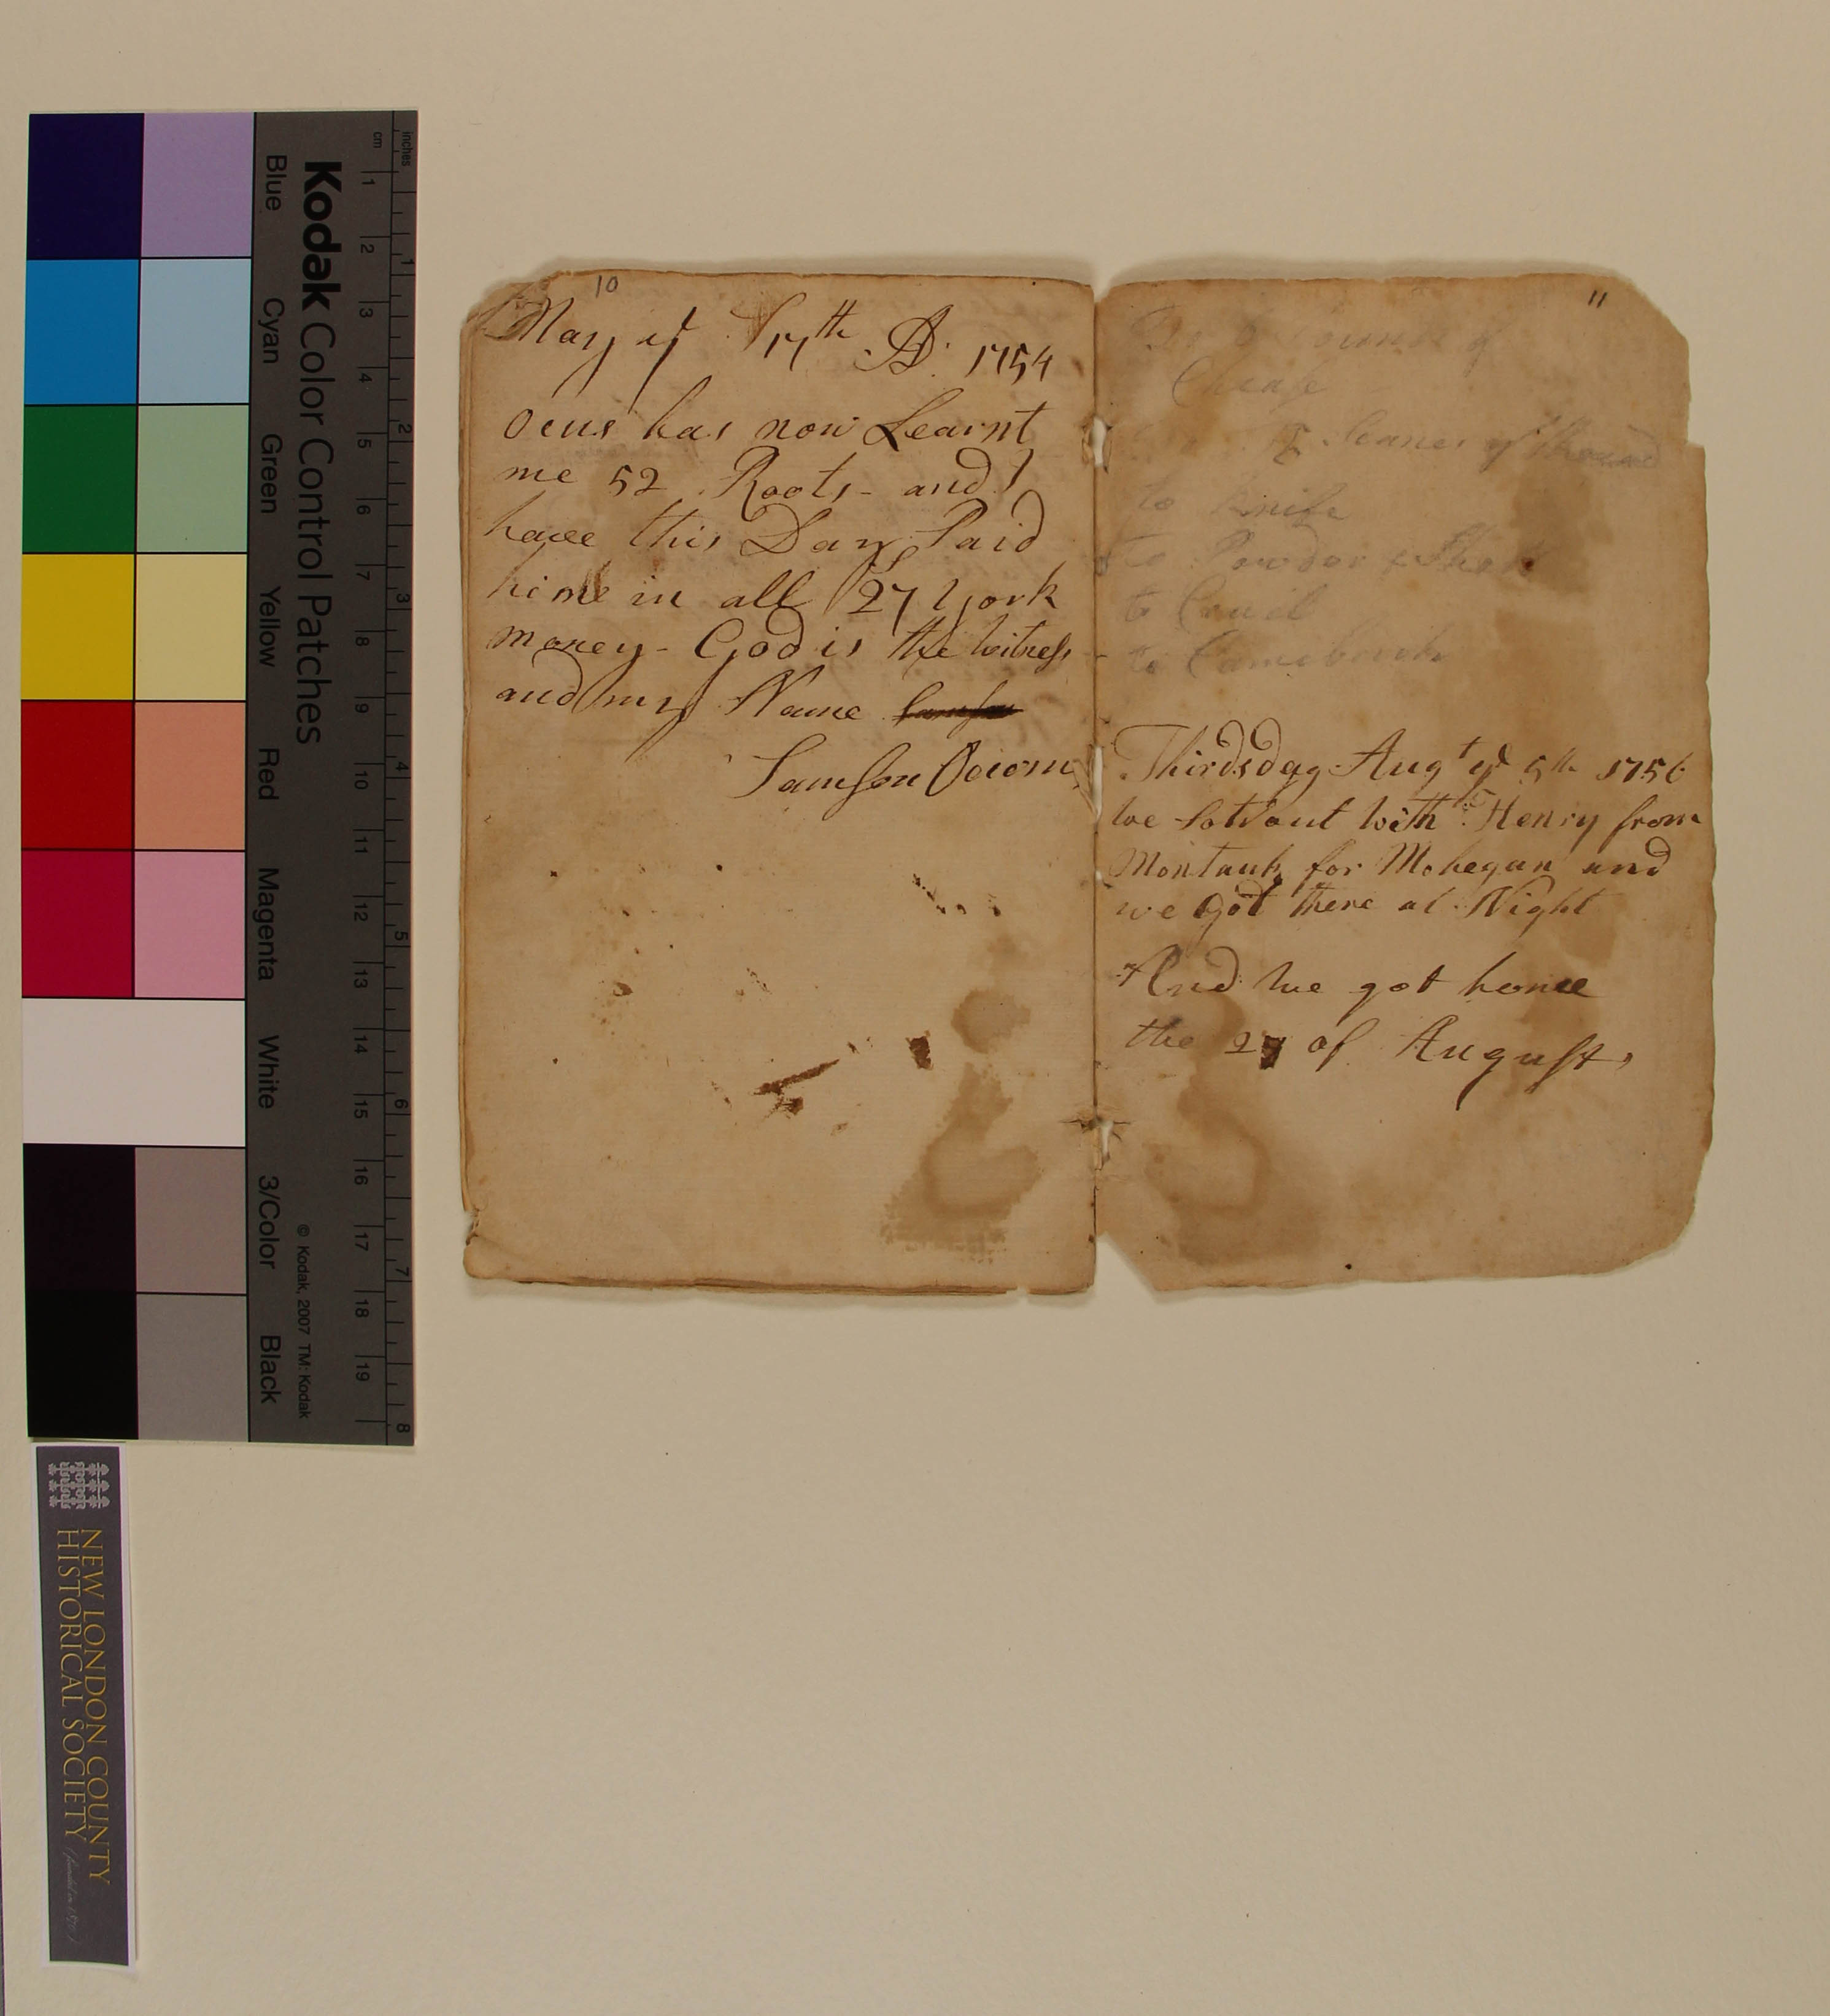 10
May ye 17th AD. 1754
Ocus has now Learnt
me 52 Roots - and I
have this Day Paid
him in all 27 York
money - God is the witness
and my Name
Samson Occom
11
of
Chease
of
to knife
to Powder & Shot
to
to
Thirdsday Augt ye 5th 1756
we Sot out with Henry from
Montauk for Mohegan and
we Got there at Night
And we got home
the 27 of August,
Kodak Color Control Patches
Blue Cyan Green Yellow Red Magenta White 3/Color Black
© Kodak, 2007 TM: Kodak
cm 1 2 3 4 5 6 7 8 9 10 11 12 13 14 15 16 17 18 19
inches 1 2 3 4 5 6 7 8
NEW LONDON COUNTY
HISTORICAL SOCIETY